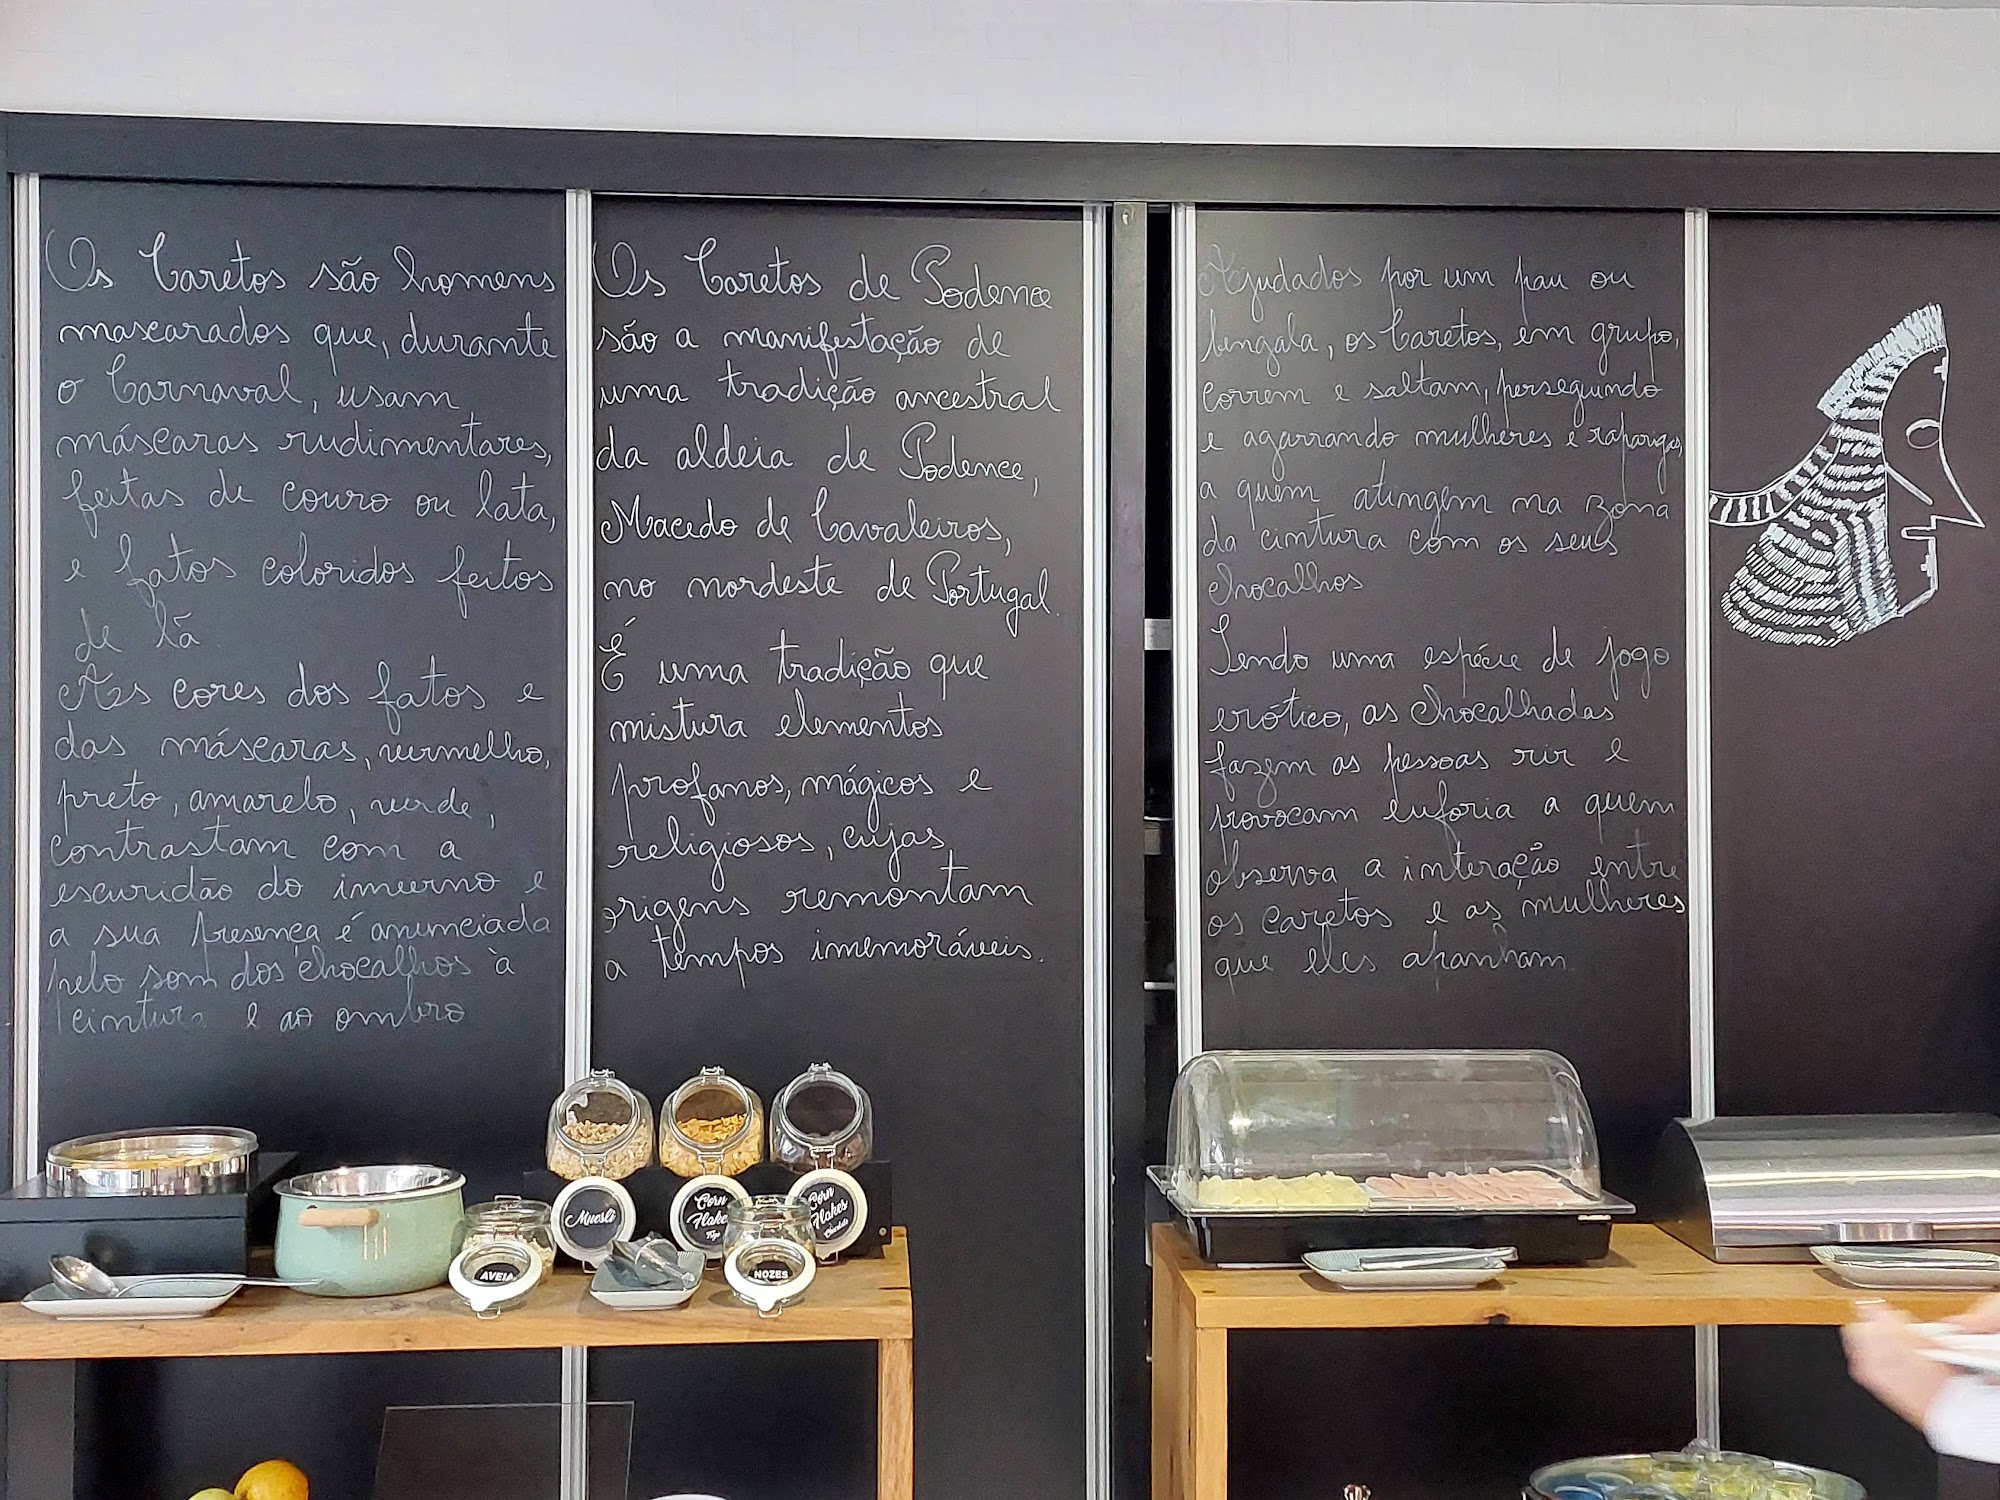 Os Caretos são homens
mascarados que, durante
o Carnaval, usam
máscaras rudimentares,
feitas de couro ou lata,
e fatos coloridos feitos
de lã
As cores dos fatos e
das máscaras, vermelho,
preto, amarelo, verde,
contrastam com a
escuridão do inverno e
a sua presença é anunciada
pelo som dos chocalhos à
cintura e ao ombro
Os Caretos de Podence
são a manifestação de
uma tradição ancestral
da aldeia de Podence,
Macedo de Cavaleiros,
no nordeste de Portugal.
É uma tradição que
mistura elementos
profanos, mágicos e
religiosos, cujas
origens remontam
a tempos imemoráveis.
Ajudados por um pau ou
bengala, os Caretos, em grupo,
correm e saltam, perseguindo
e agarrando mulheres e raparigas,
a quem atingem na zona
da cintura com os seus
chocalhos
Sendo uma espécie de jogo
erótico, as chocalhadas
fazem as pessoas rir e
provocam euforia a quem
observa a interação entre
os caretos e as mulheres
que eles apanham.
Muesli
Corn
Flakes
Trigo
Corn
Flakes
Chocolate
AVEIA
NOZES